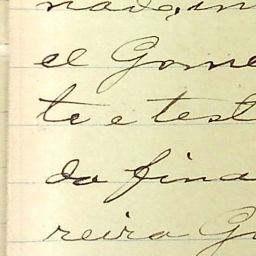 nado, in
el Gome
te e test
da fina
reira Go